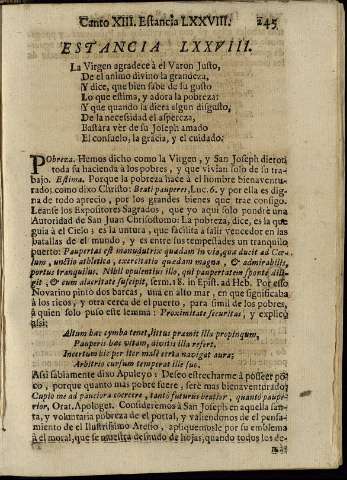 Canto XIII. Estancia LXXVIII. 245
ESTANCIA LXXVIII.
La Virgen agradece à el Varon Justo,
De el animo divino la grandeza,
Y dice, que bien sabe de su gusto
Lo que estima, y adora la pobreza:
Y que quando la diera algun disgusto,
De la necesidad el aspereza,
Bastàra vèr de su Joseph amado
El consuelo, la gracia, y el cuidado.
Pobreza. Hemos dicho como la Virgen, y San Joseph dieron
toda su hacienda à los pobres, y que vivian solo de su tra-
bajo. Estima. Porque la pobreza hace à el hombre bienaventu-
rado; como dixo Christo: Beati pauperes, Luc. 6. y por ella es dig-
na de todo aprecio, por los grandes bienes que trae consigo.
Leanse los Expositores Sagrados, que yo aqui solo pondrè una
Autoridad de San Juan Chrisostomo: La pobreza, dice, es la que
guia à el Cielo; es la untura, que facilita à salir vencedor en las
batallas de el mundo, y es entre sus tempestades un tranquilo
puerto: Paupertas est manuductrix quædam in via, quæ ducit ad Cœ-
lum, unctio athletica, exercitatio quædam magna, & admirabilis,
portus tranquillus. Nihil opulentius illo, qui paupertatem spontè dili-
git, & cum alacritate suscipit, serm. 18. in Epist. ad Heb. Por esto
Novarino pintò dos barcas, una en alto mar, en que significaba
à los ricos, y otra cerca de el puerto, para simil de los pobres,
à quien solo puso este lemma: Proximitate securitas, y explicò
assi:
Altum hæc cymba tenet, littus præmit illa propinquum,
Pauperis hæc vitam, divitis illa refert.
Incertum hic per iter malè certa navigat aura;
Arbitrio cursum temperat ille suo.
Assi sabiamente dixo Apuleyo: Deseo estrecharme à posseer po-
co, porque quanto mas pobre fuere, serè mas bienaventurado:
Cupio me ad pauciora coercere, tantò futurus beatior, quantò paupe-
rior, Orat. Apologet. Considerèmos à San Joseph en aquella san-
ta, y voluntaria pobreza de el portal, y valiendonos de el pensa-
miento de el Ilustrissimo Aresio, apliquemosle por su emblema
à el moral, que se muestra desnudo de hojas, quando todos los de-